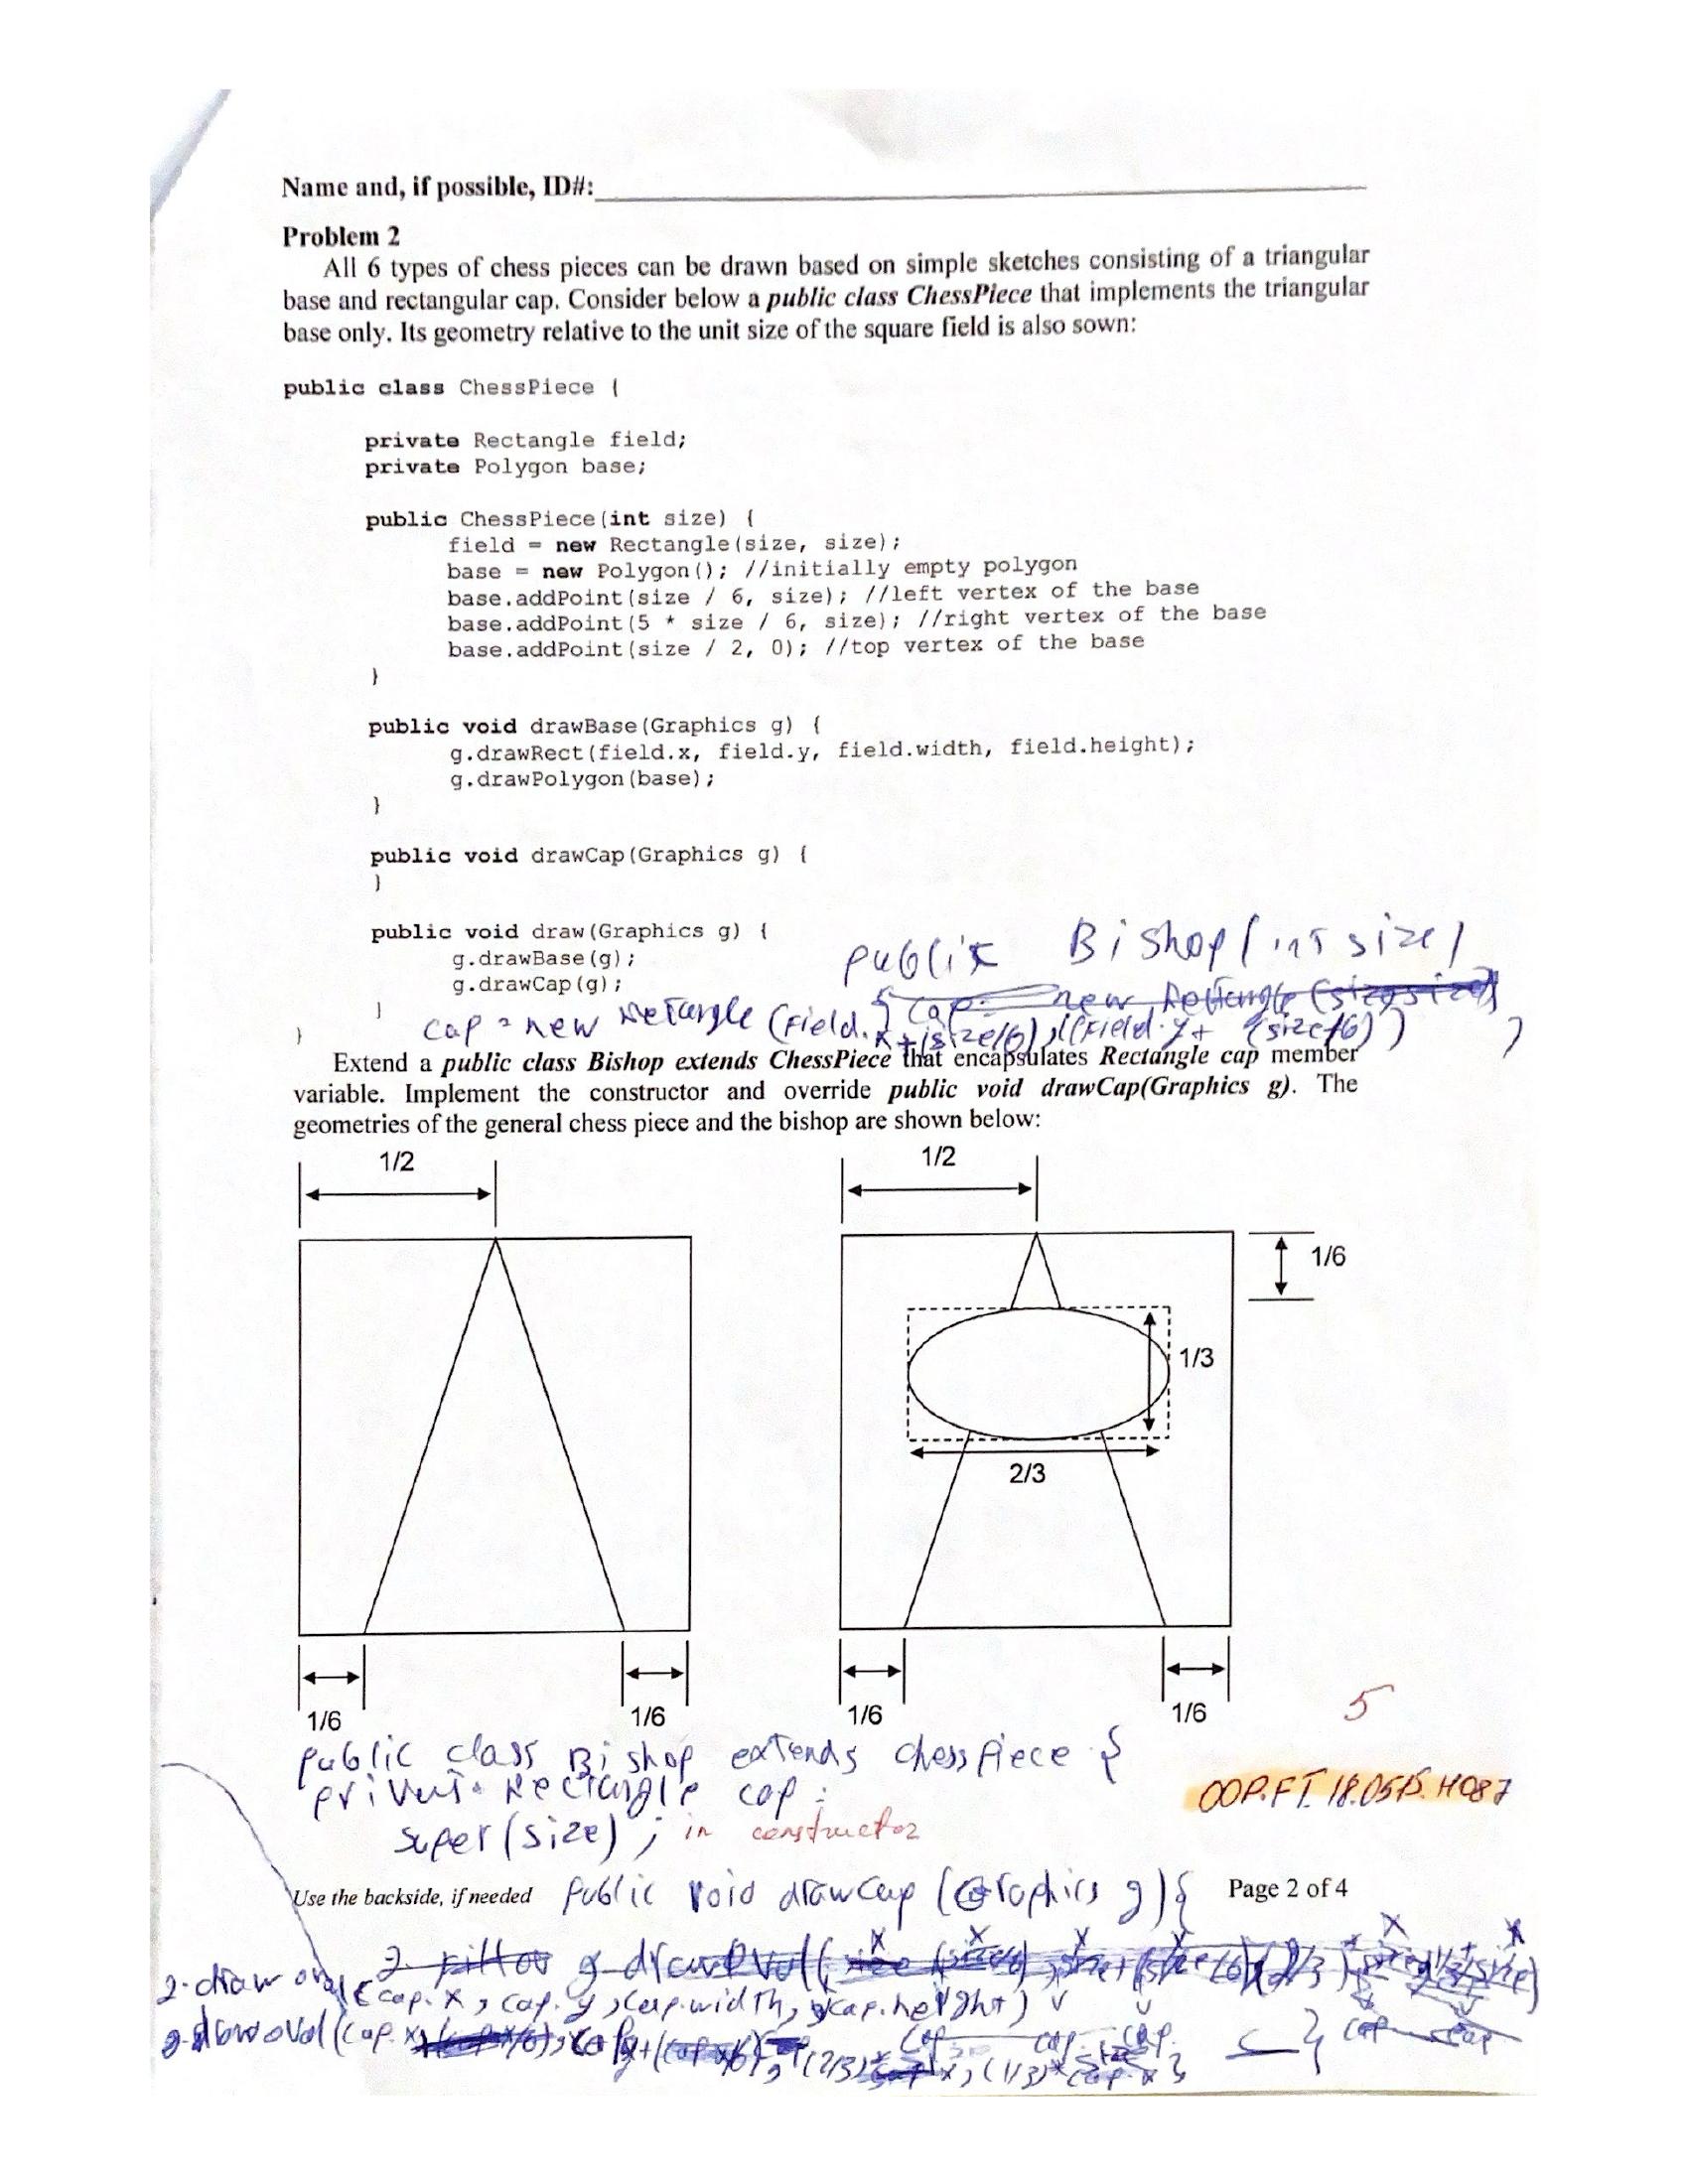 Name and, if possible, ID#:
Problem 2
All 6 types of chess pieces can be drawn based on simple sketches consisting of a triangular
base and rectangular cap. Consider below a public class ChessPiece that implements the triangular
base only. Its geometry relative to the unit size of the square field is also sown:
public class ChessPiece {
private Rectangle field;
private Polygon base;
public ChessPiece(int size) {
field = new Rectangle(size, size);
base = new Polygon(); //initially empty polygon
base.addPoint(size / 6, size); //left vertex of the base
base.addPoint(5 * size / 6, size); //right vertex of the base
base.addPoint(size / 2, 0); //top vertex of the base
}
public void drawBase(Graphics g) {
g.drawRect(field.x, field.y, field.width, field.height);
g.drawPolygon(base);
}
public void drawCap(Graphics g) {
}
public void draw(Graphics g) {
g.drawBase(g);
g.drawCap(g);
}
}
public Bishop(int size)
{ cap = new Rectangle (size, size)
cap = new Rectangle (field.x+(size/6), (field.y+ (size/6))
Extend a public class Bishop extends ChessPiece that encapsulates Rectangle cap member
variable. Implement the constructor and override public void drawCap(Graphics g). The
geometries of the general chess piece and the bishop are shown below:
1/2 1/2
1/6
1/3
2/3
1/6 1/6 1/6 1/6
5
public class Bishop extends chessPiece {
Rectangle cap ;
super(size) ; in constructor
OOP.FT.18.0515.H087
Use the backside, if needed public void drawCap (Graphics g){ Page 2 of 4
g.draw oval (cap.x, cap.y, cap.width, cap.height)
g.draw oval (cap.x
}